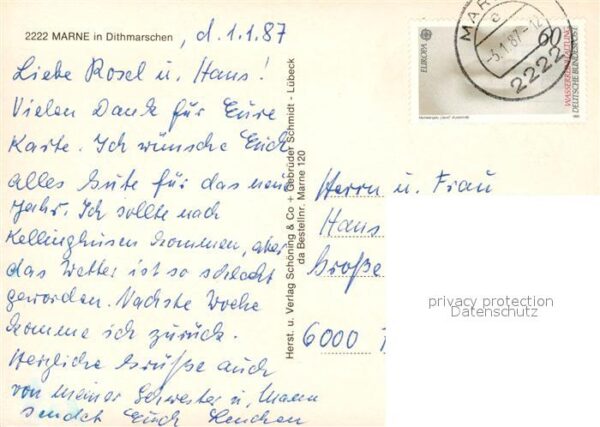 2222 MARNE in Dithmarschen , d. 1.1.87
Liebe Rosel u. Hans!
Vielen Dank für Eure
Karte. Ich wünsche Euch
alles Gute für das neue
Jahr. Ich sollte nach
Kellinghusen kommen, aber
das Wetter ist so schlecht
geworden. Nächste Woche
komme ich zurück.
Herzliche Grüße auch
von meiner Schwester u. Mann
sendet Euch
Herst. u. Verlag Schöning & Co + Gebrüder Schmidt - Lübeck
da Bestellnr. Marne 120
EUROPA
60
WASSERREINHALTUNG
DEUTSCHE BUNDESPOST
MAR
c
-5.1.87-12
2222
Herrn u. Frau
Hans
Große
6000
privacy protection
Datenschutz